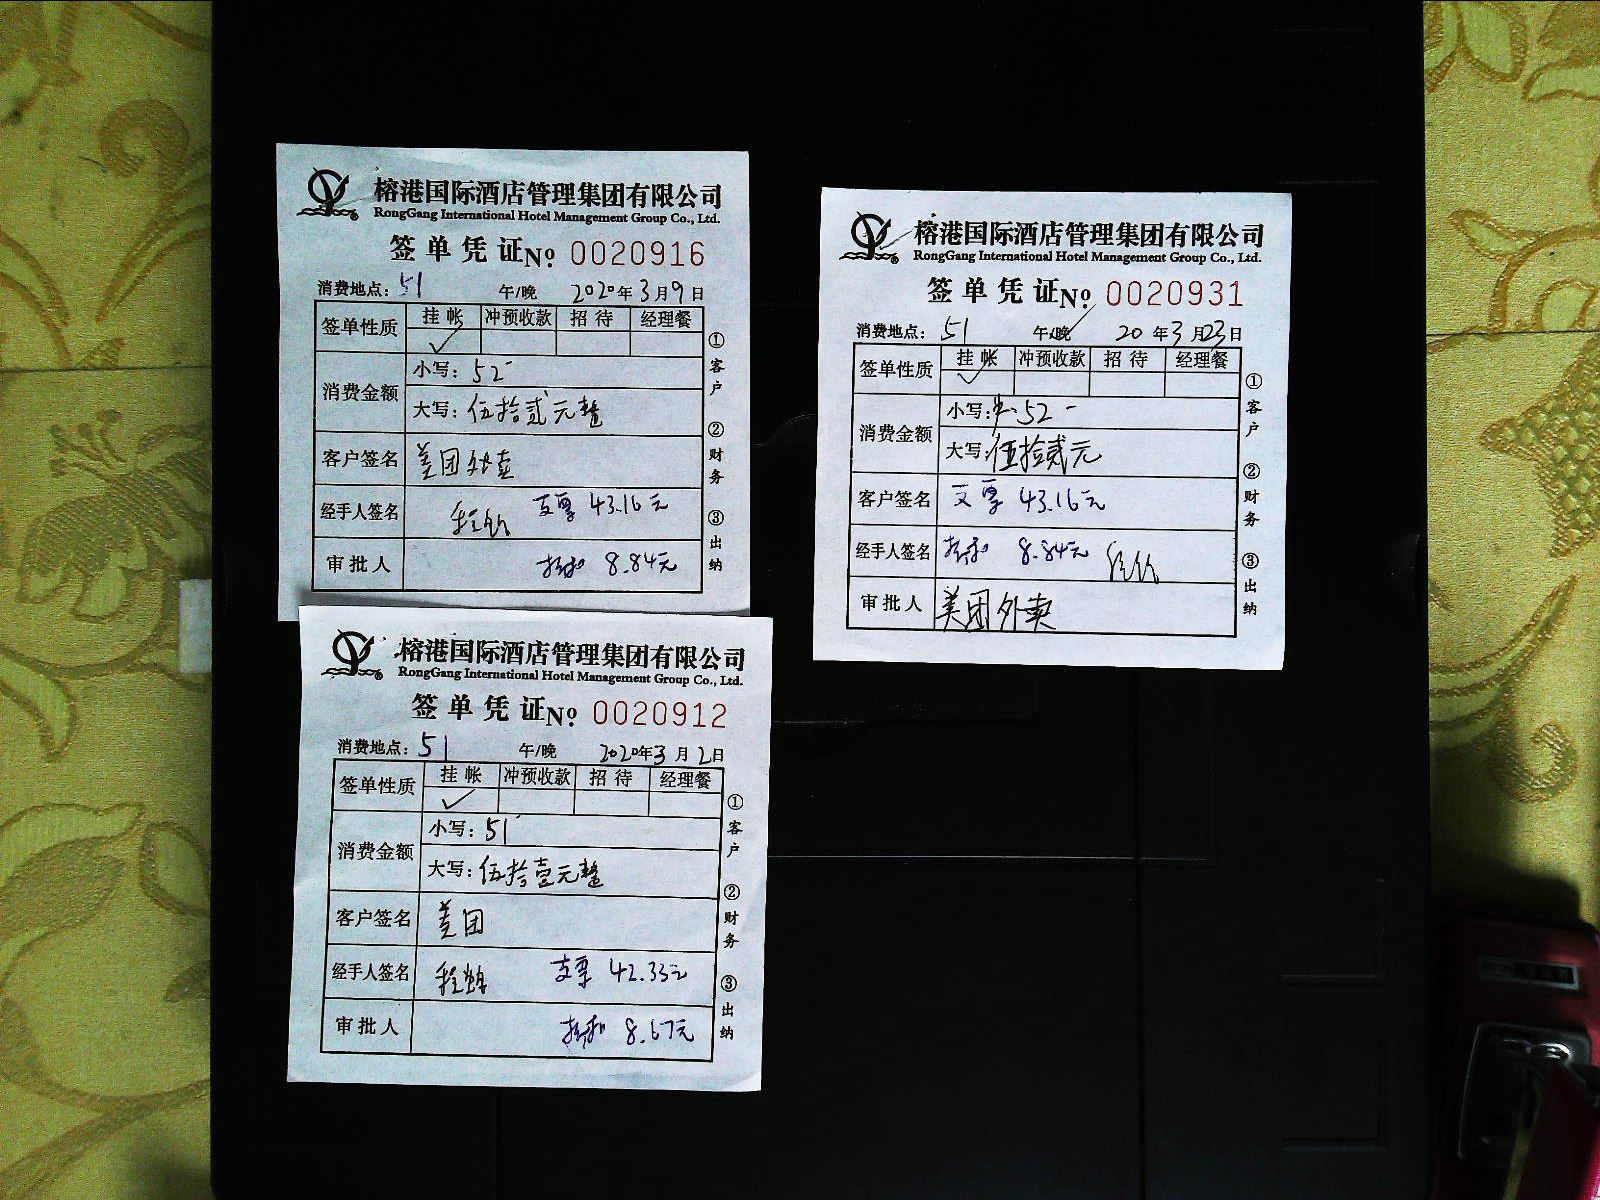 榕港国际酒店管理集团有限公司
RongGang International Hotel Management Group Co., Ltd.
签单凭证 No 0020916
消费地点: 51 午/晚 2020年3月9日
签单性质 挂帐 冲预收款 招待 经理餐
✓
消费金额 小写: 52
大写: 伍拾贰元整
客户签名 美团外卖
经手人签名 支票 43.16元
审批人 8.84元
①客户 ②财务 ③出纳
榕港国际酒店管理集团有限公司
RongGang International Hotel Management Group Co., Ltd.
签单凭证 No 0020931
消费地点: 51 午/晚 20年3月23日
签单性质 挂帐 冲预收款 招待 经理餐
✓
消费金额 小写: 52
大写: 伍拾贰元
客户签名 支票 43.16元
经手人签名 8.84元
审批人 美团外卖
①客户 ②财务 ③出纳
榕港国际酒店管理集团有限公司
RongGang International Hotel Management Group Co., Ltd.
签单凭证 No 0020912
消费地点: 51 午/晚 2020年3月2日
签单性质 挂帐 冲预收款 招待 经理餐
✓
消费金额 小写: 51
大写: 伍拾壹元整
客户签名 美团
经手人签名 支票 42.33元
审批人 8.67元
①客户 ②财务 ③出纳